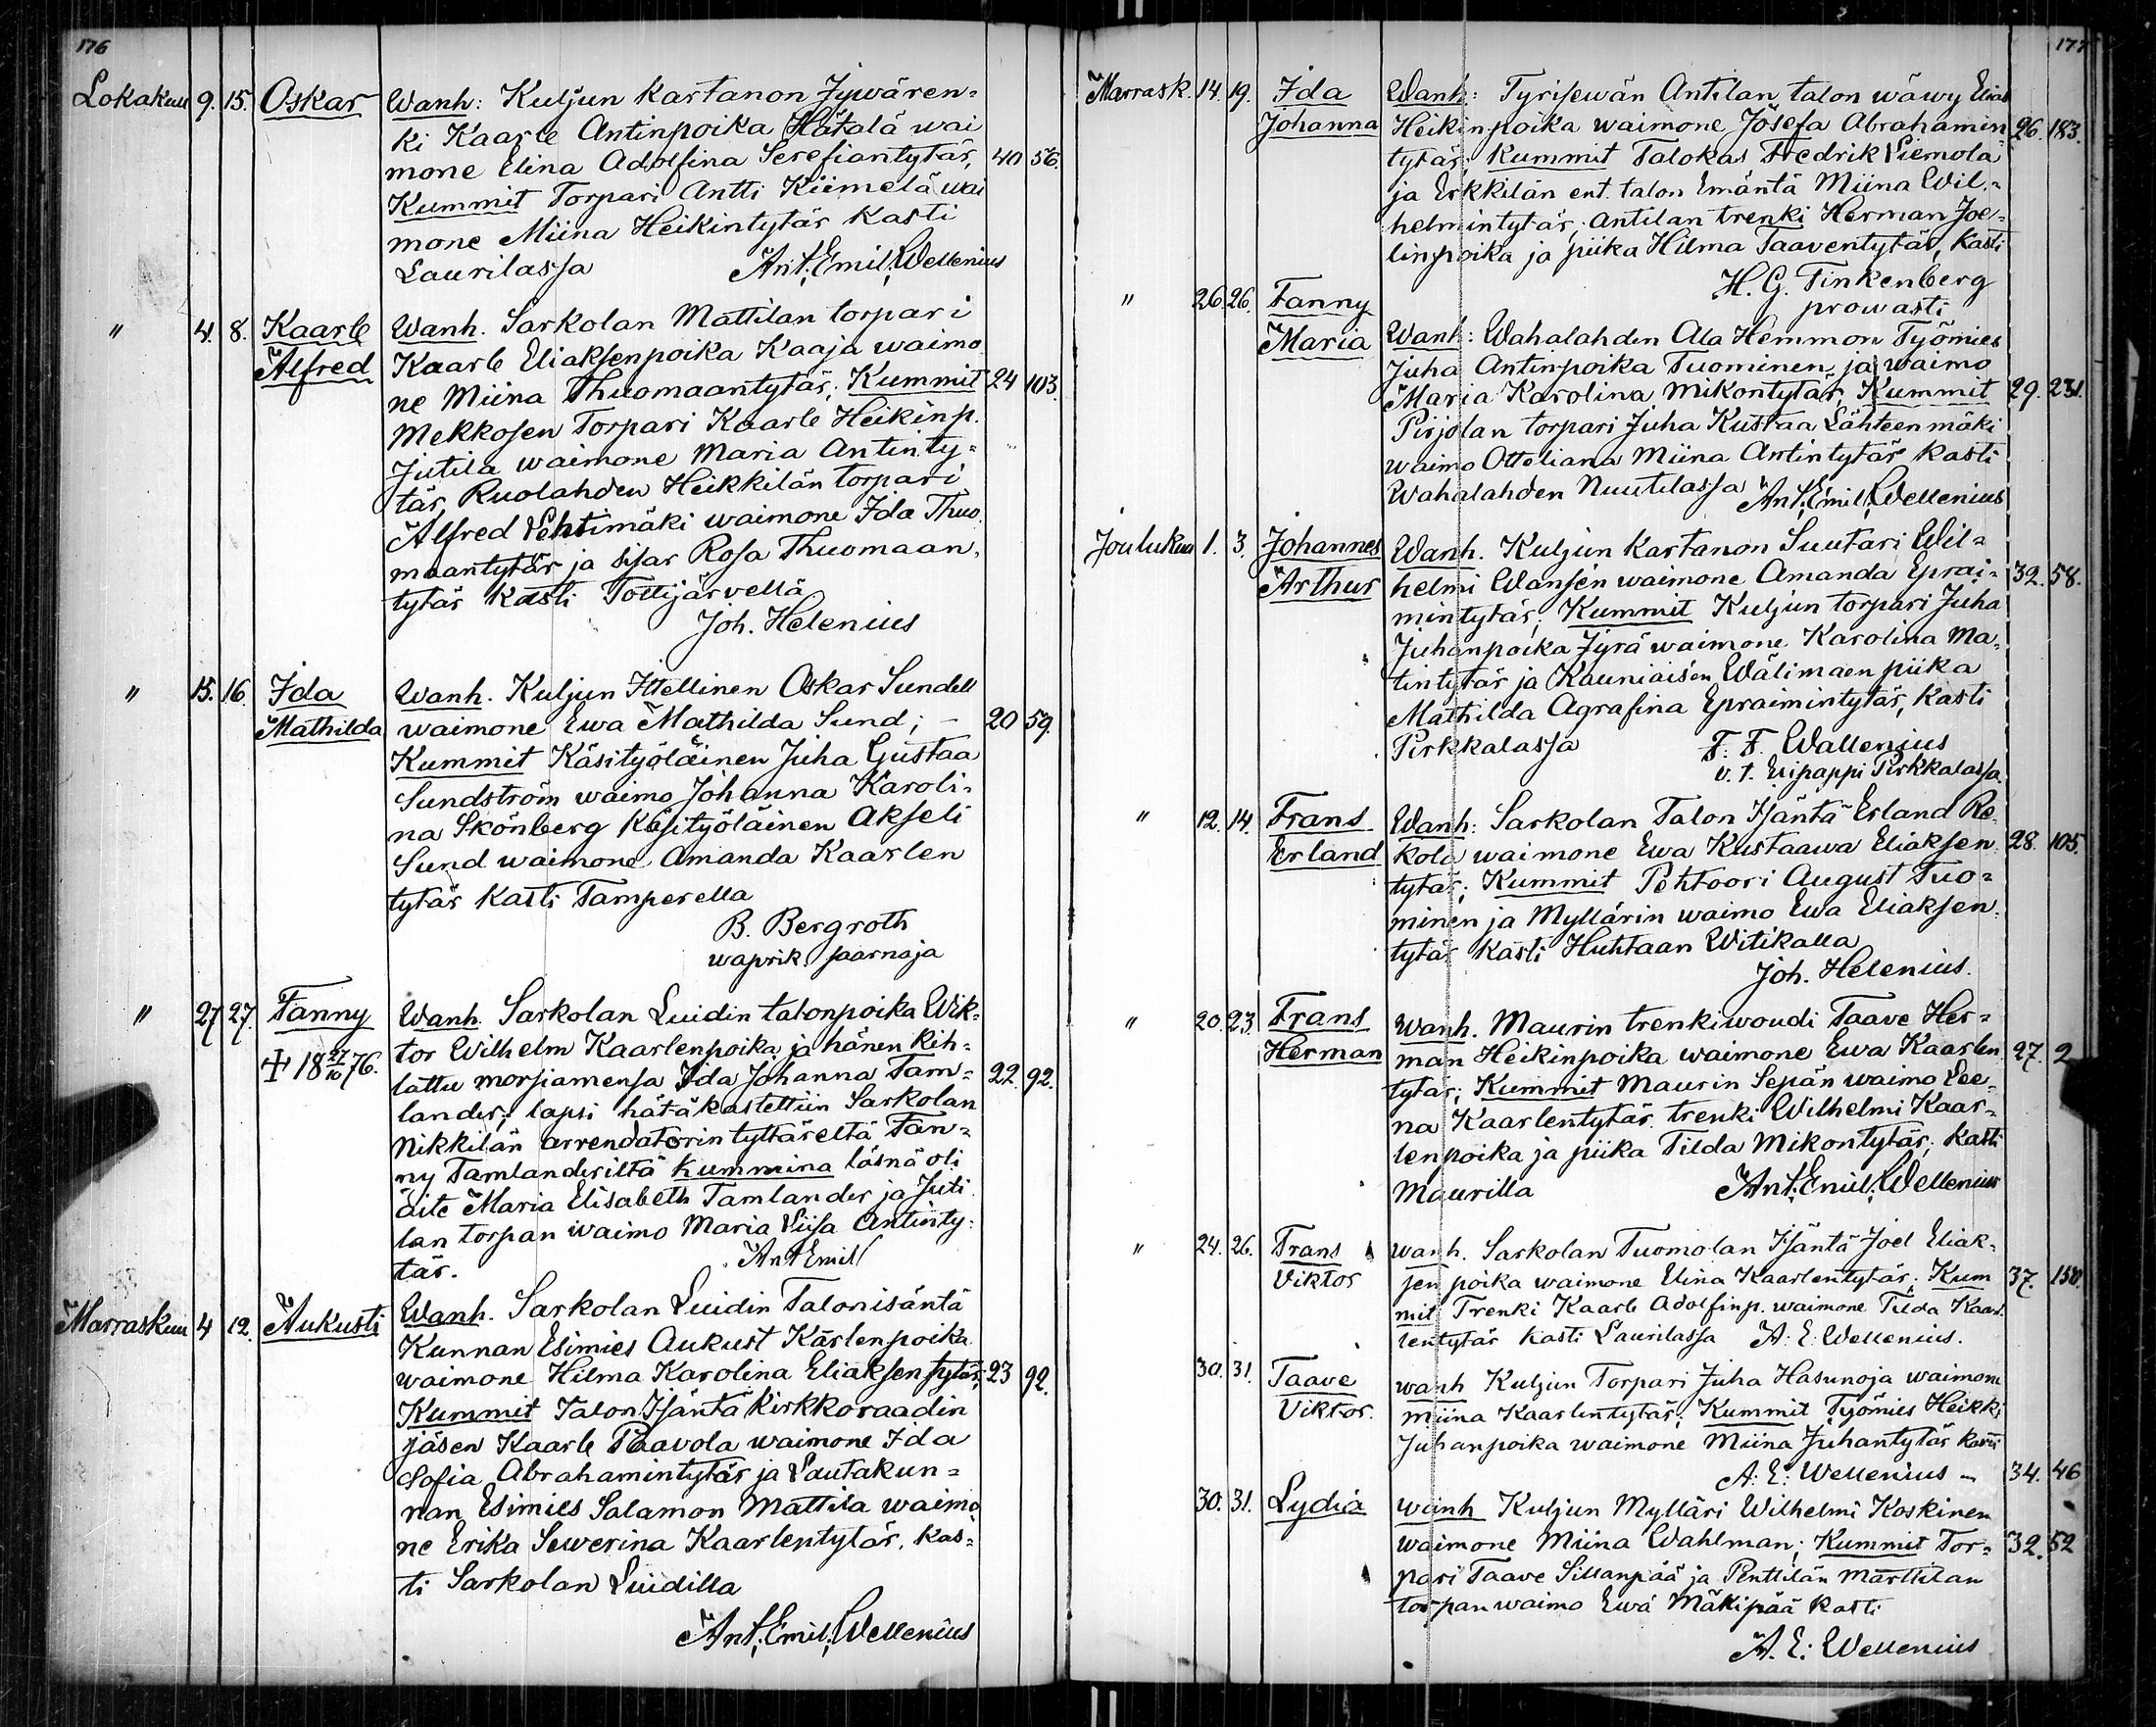 176
Lokakuu 9. 15. Oskar Wanh: Kuljun Kartanon Jywären-
ki Kaarle Antinpoika Hätälä wai
mone Elina Adolfina Serefiantytär, 40 56.
Kummit Torpari Antti Kiimelä wai
mone Miina Heikintytär Kasti
Laurilassa Ant. Emil. Wellenius
" 4. 8. Kaarle Wanh. Sarkolan Mattilan torpari
Alfred Kaarle Eliaksenpoika Kaaja waimo
ne Miina Thuomaantytär; Kummit 24 103.
Mekkosen Torpari Kaarle Heikinp.
Jutila waimone Maria Antinty-
tär, Ruolahden Heikkilän torpari
Alfred Lehtimäki waimone Ida Thuo
maantytär ja sisar Rosa Thuomaan,
tytär Kasti Tottijärvellä
Joh. Helenius
" 15. 16. Ida Wanh. Kuljun Itellinen Oskar Sundell
Mathilda waimone Ewa Mathilda Sund; – 20 59.
Kummit Käsityöläinen Juha Gustaa
Sundström waimo Johanna Karoli-
na Skönberg Käsityöläinen Akseli
Sund waimone Amanda Kaarlen
tytär Kasti Tamperella
B. Bergroth
waprik. saarnaja
" 27 27. Fanny Wanh. Sarkolan Luidin talonpoika Wik-
✝ 18 27/10 76. tor Wilhelm Kaarlenpoika ja hänen Kih-
lattu morsiamensa Ida Johanna Tam- 22. 92.
lander; lapsi hätäkastettiin Sarkolan
Nikkilän arrendatorin tyttäreltä Fan-
ny Tamlanderiltä Kummina läsnä oli
äite Maria Elisabeth Tamlander ja Juti
lan torpan waimo Maria Liisa Antinty-
tär. Ant Emil
Marraskuu 4 12. Aukusti Wanh. Sarkolan Luidin Talonisäntä
Kunnan Esimies Aukust Kärlenpoika
waimone Hilma Karolina Eliaksentytär; 23 92.
Kummit Talon Isäntä Kirkkoraadin
jäsen Kaarle Paavola waimone Ida
Sofia Abrahamintytär ja Lautakun-
nan Esimies Salamon Mattila waimo
ne Erika Sewerina Kaarlentytär. Kas-
ti Sarkolan Luidilla
Ant. Emil. Wellenius
177
Marrask. 14. 19. Ida Wanh: Tyrisewän Antilan talon wäwy Elias
Johanna Heikinpoika waimone Jösefa Abrahamin 26. 183.
tytär; Kummit Talokas Fredrik Liemola
ja Erkkilän ent. talon Emäntä Miina Wil-
helmintytär; Antilan trenki Herman Joe-
linpoika ja piika Hilma Taaventytär, Kasti
H. G. Tinkenberg
prowasti
" 26. 26. Fanny
Maria Wanh: Wahalahden Ala Hemmon Työmies
Juha Antinpoika Tuominen ja waimo
Maria Karolina Mikontytär, Kummit 29. 231.
Pirjolan torpari Juha Kustaa Lähteenmäki
waimo Otteliana Miina Antintytär Kasti
Wahalahden Nuutilassa Ant. Emil. Wellenius
Joulukuu 1. 3. Johannes Wanh. Kuljun Kartanon Suutari Wil-
Arthur helmi Wansén waimone Amanda Eprai- 32. 58.
mintytär; Kummit Kuljun torpari Juha
Juhanpoika Jyrä waimone Karolina Ma-
tintytär ja Kauniaisen Wälimaen piika
Mathilda Agrafina Epraimintytär, Kasti
Pirkkalassa F. F. Wallenius
v. t. Esipappi Pirkkalassa.
" 12. 14. Frans Wanh: Sarkolan Talon Isäntä Erland Re
Erland kola waimone Ewa Kustaawa Eliaksen 28. 105.
tytär; Kummit Pehtoori August Tuo-
minen ja Myllärin waimo Ewa Eliaksen
tytär Kasti Huhtaan Witikalla
Joh. Helenius.
" 20. 23. Frans Wanh. Maurin trenkiwoudi Taave Her-
Herman man Heikinpoika waimone Ewa Kaarlen 27. 2
tytär; Kummit Maurin Sepän waimo Lee-
na Kaarlentytär. trenki Wilhelmi Kaar-
lenpoika ja piika Tilda Mikontytär; Kasti
Maurilla Ant. Emil. Wellenius
" 24. 26. Frans Wanh. Sarkolan Tuomolan Isäntä Joel Eliak-
Viktor senpoika waimone Elina Kaarlentytär; Kum 37. 150.
mit Trenki Kaarle Adolfinp. waimone Tilda Kaar
lentytär Kasti Laurilassa A. E. Wellenius.
30. 31. Taave Wanh Kuljun Torpari Juha Hasunoja waimone
Viktor. Miina Kaarlentytär; Kummit Työmies Heikki
Juhanpoika waimone Miina Juhantytär Kasti
A. E. Wellenius – 34. 46
30. 31. Lydia Wanh Kuljun Mylläri Wilhelmi Koskinen
waimone Miina Wahlman; Kummit Tor- 32. 52
pari Taave Sillanpää ja Penttilän Marttilan
torpan waimo Ewa Mäkipää Kasti
A. E. Wellenius